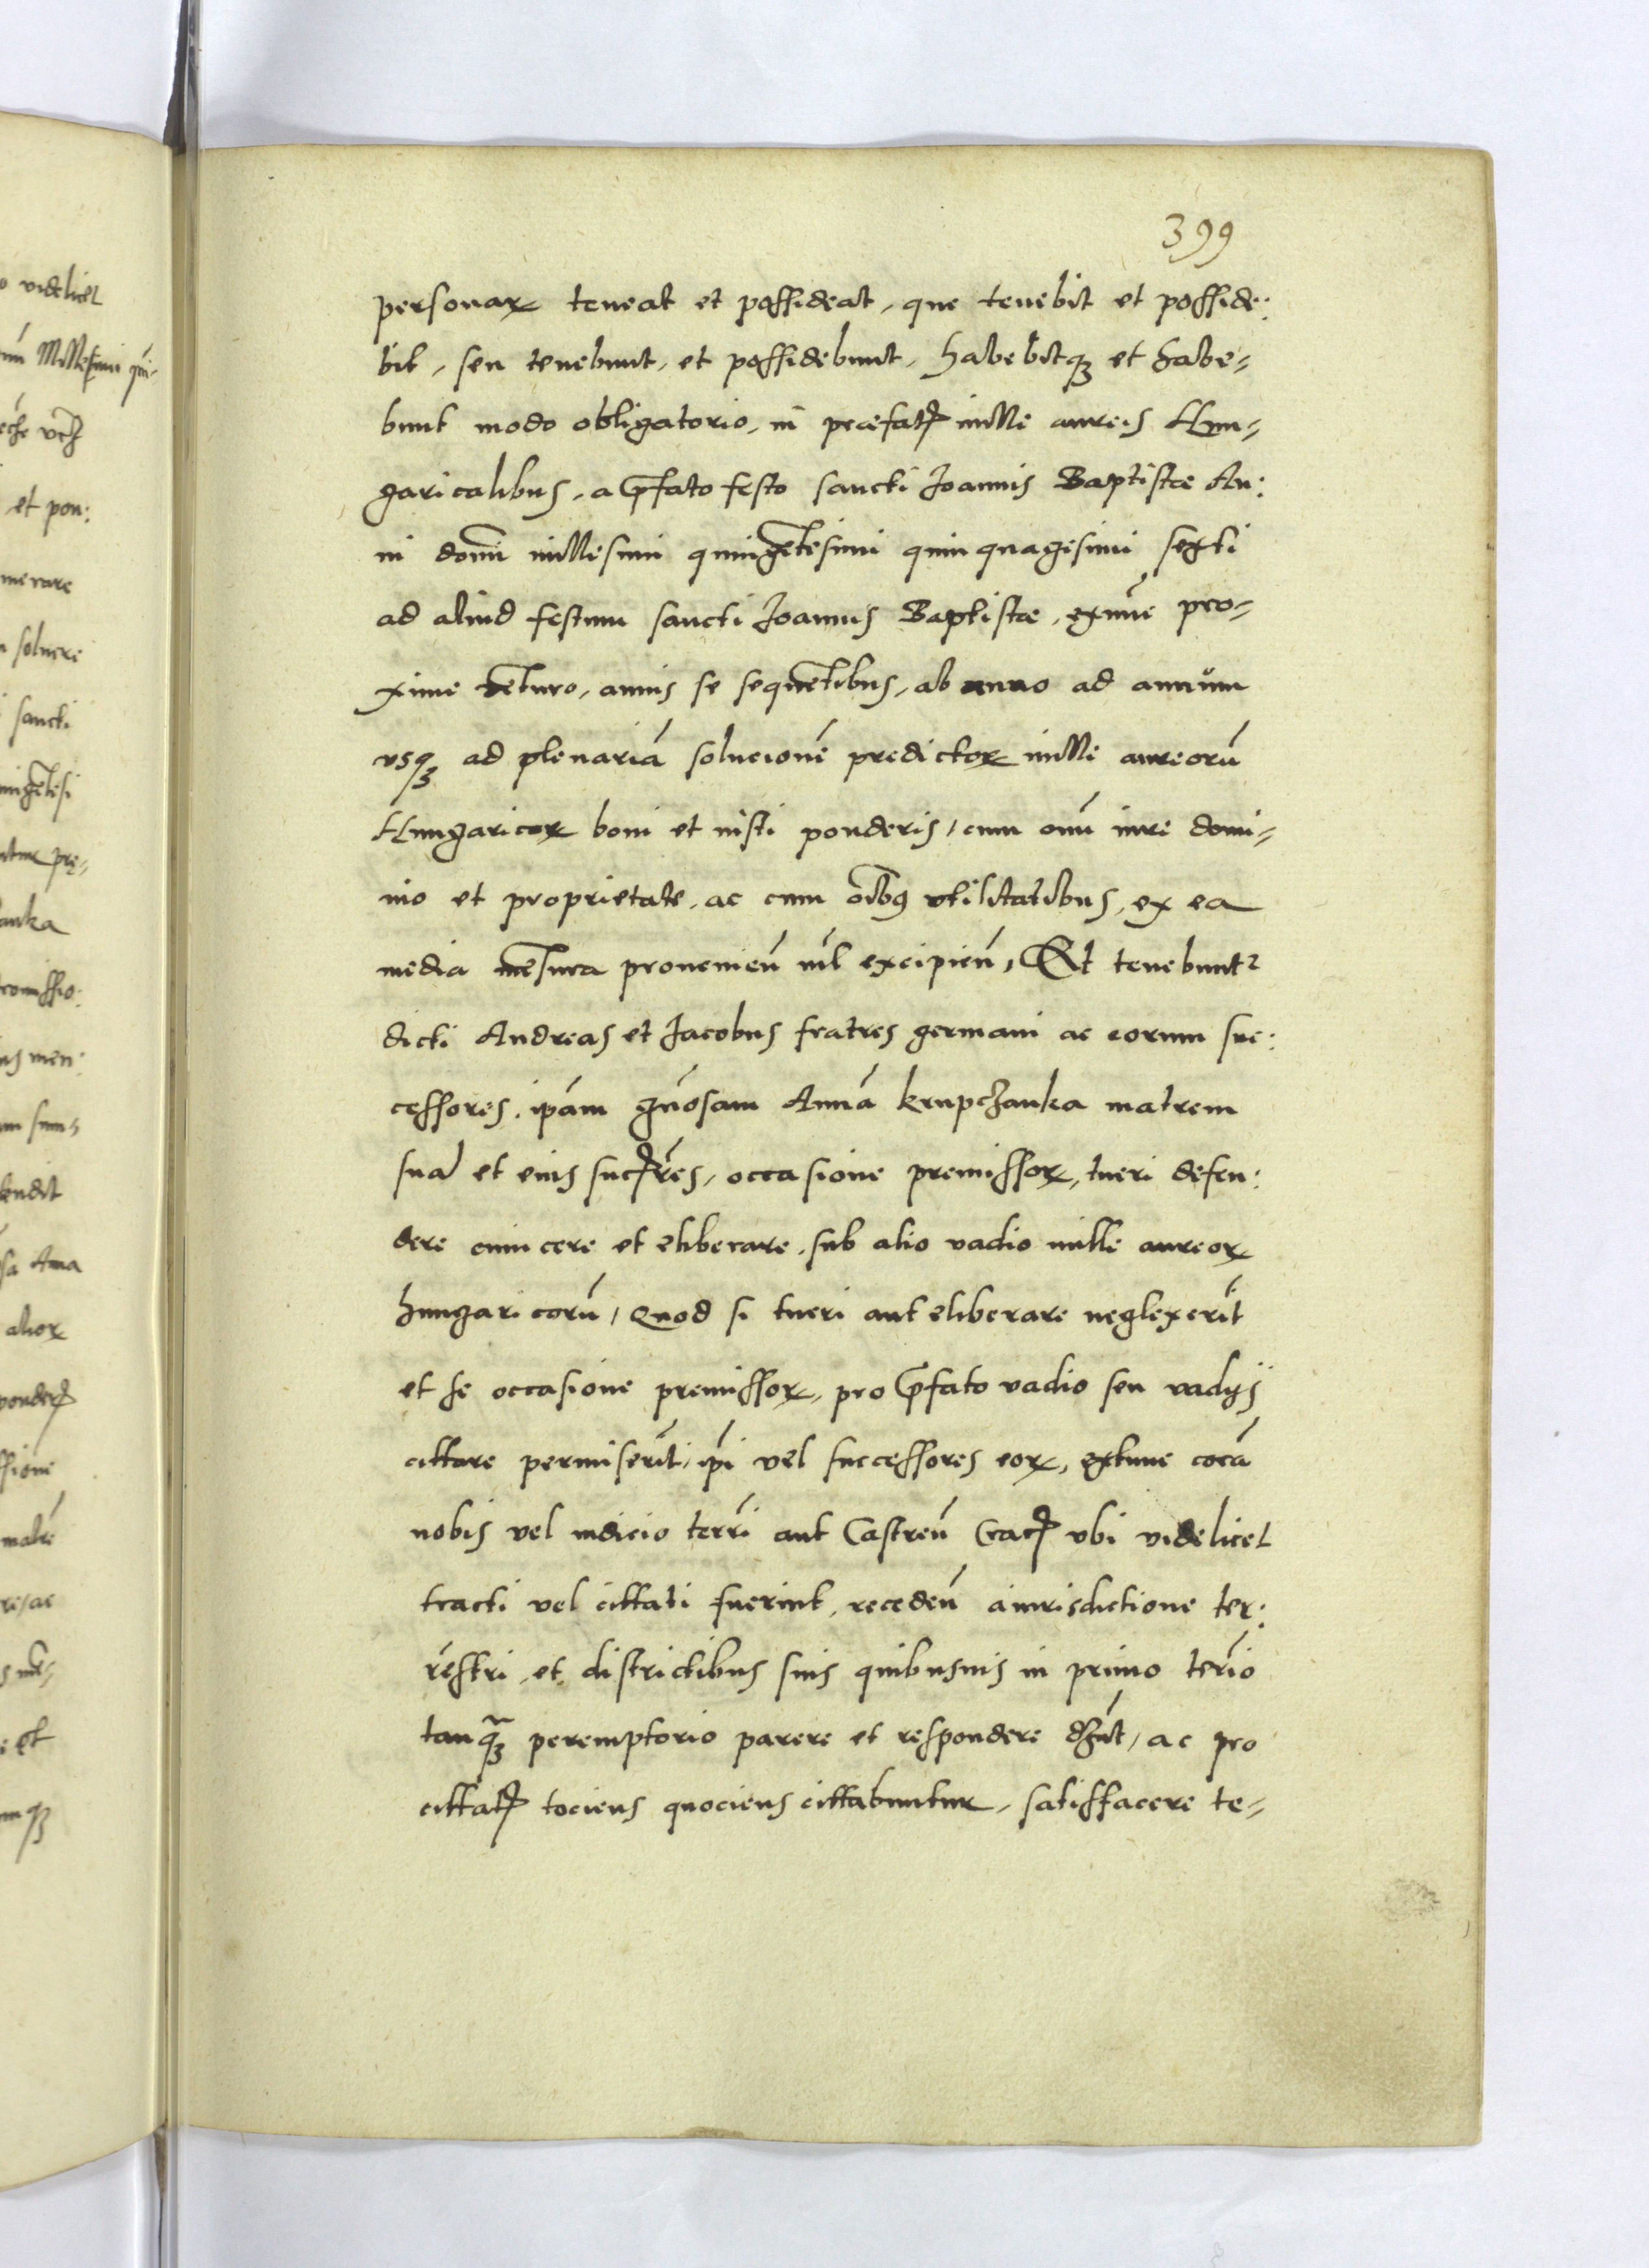 399
personaꝝ teneat et possideat, que tenebit et posside:
bit, seu tenebunt, et possidebunt, habebitqꝫ et habe-
bunt modo obligatorio, in praefatꝭ mille aureis Hun-
garicalibus, a p̄fato festo sancti Joannis Baptistae An:
ni domī millesimi quingētesimi quinquagesimi sexti
ad aliud festum sancti Joannis Baptistae, extūc pro-
xime vēturo, annis se sequētibus, ab anno ad annum
vsqꝫ ad plenariā solucionē predictoꝝ mille aureorū
Hungaricoꝝ boni et iusti ponderis, cum om̄i iure domi-
nio et proprietate, ac cum oībꝰ vtilitatibus, ex ea
media mēsura proueniēn vīl excipien̄, Et tenebunt᷑
dicti Andreas et Jacobus fratres germani ac eorum suc:
cessores, ip̄am gn̄osam Annā Krupczanka matrem
suā et eius succꝭrēs, occasione premissoꝝ, tueri defen:
dere euincere et eliberare, sub alio vadio mille aureoꝝ
hungaricorū, Quod si tueri aut eliberare neglexerīt
et se occasione premissoꝝ, pro p̄fato vadio seu vadys
cittare permiserīt, ip̄i vel successores eoꝝ, extunc corā
nobis vel iudicio terrī aut Castren̄ Cracꝭ vbi videlicet
tracti vel cittati fuerint, receden̄ a iurisdictione ter:
restri, et districtibus suis quibusuis in primo ter̄io
tanqꝫ peremptorio parere et respondere dēbūt, ac pro
cittatꝭ tociens quociens cittabuntur, satisfacere te-
o videlicet
et pon:
merare
soluere
sancti
anka
romissio:
kendit
alioꝝ
ssione
matrē